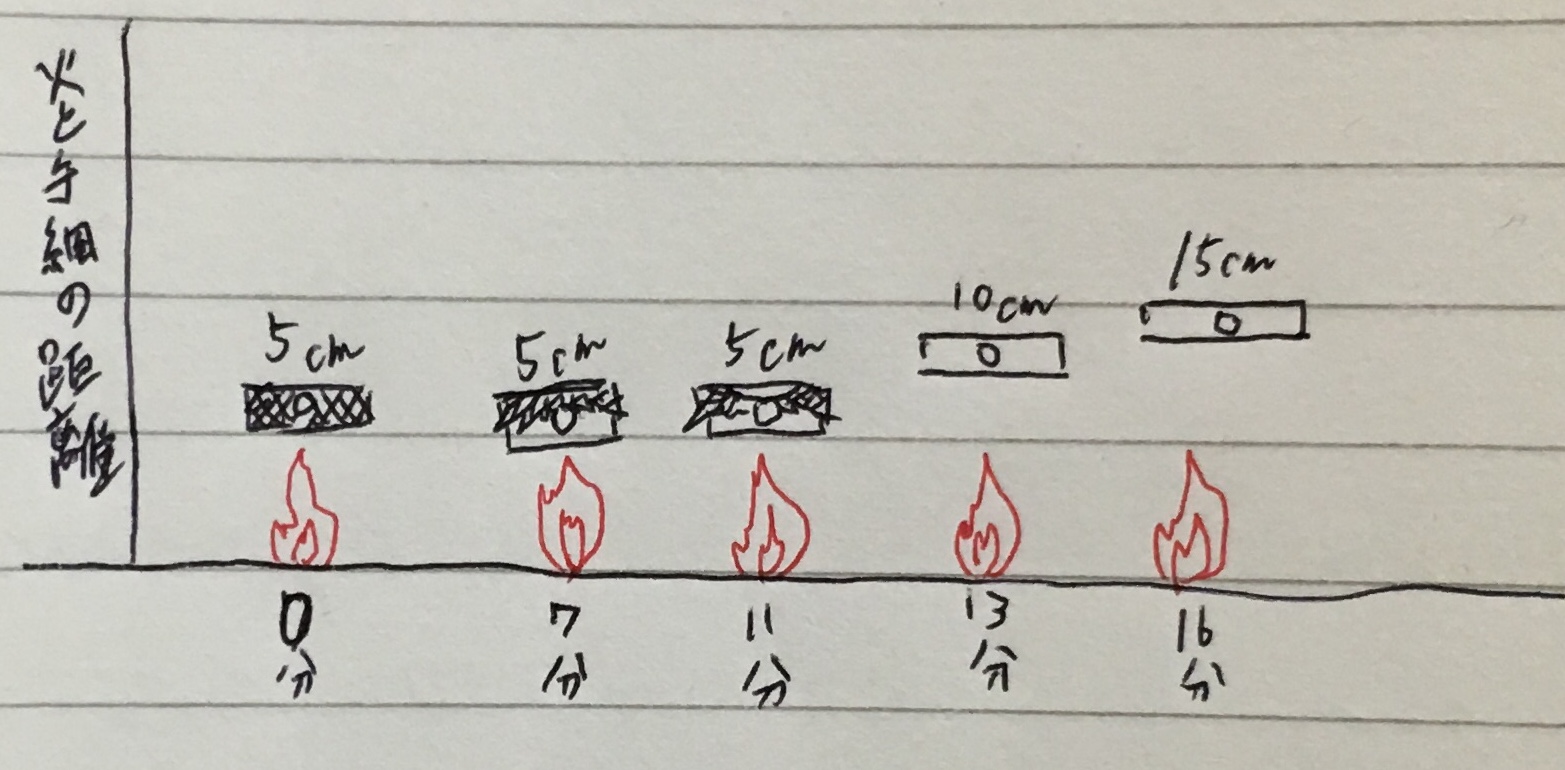 火と手網の距離
5cm
5cm
5cm
10cm
15cm
0分
7分
11分
13分
16分